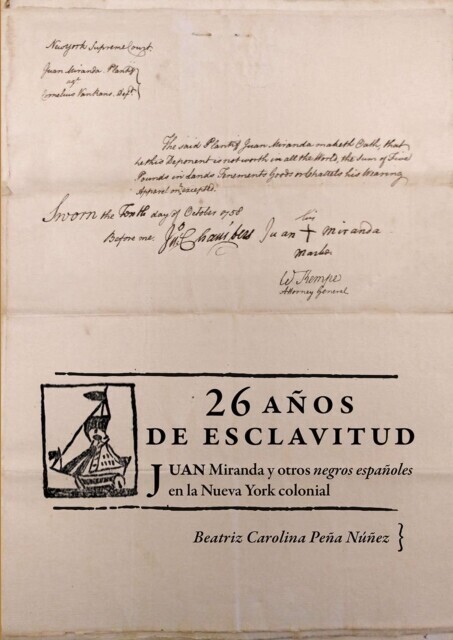 New york Supreme Court.
Juan Miranda Plantif
agt
Cornelius Van Rans. Deft
The said Plantif Juan Miranda maketh Oath, that
he this Deponent is not worth in all the World, the Sum of Five
Pounds in Lands Tenements Goods or Chattels his Wearing
Apparel excepted.
Sworn the Tenth day of October 1758
Before me
Jno Chambers
Juan his + miranda
Marke
W Kempe
Attorney General
26 AÑOS
DE ESCLAVITUD
JUAN Miranda y otros negros españoles
en la Nueva York colonial
Beatriz Carolina Peña Núñez }